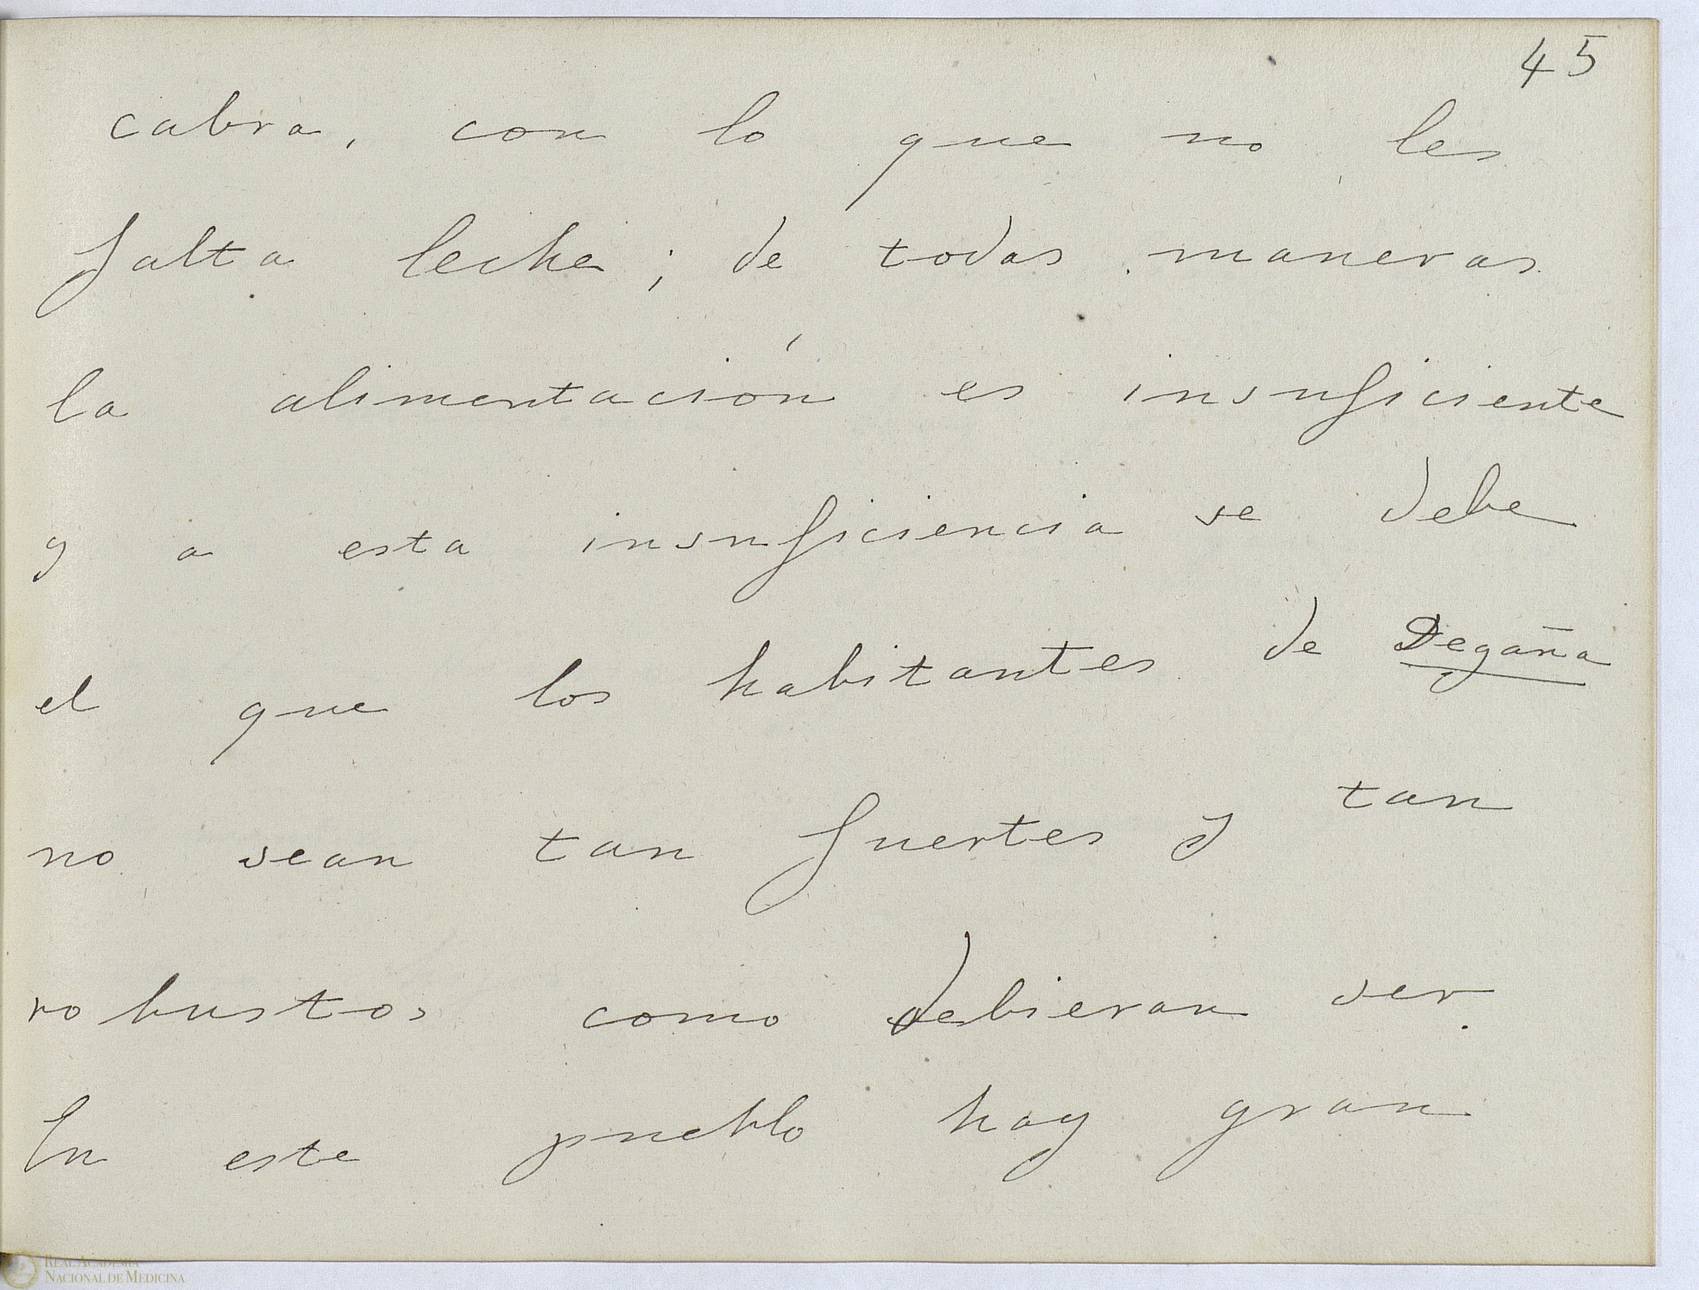 45
cabra, con lo que no les
falta leche; de todas maneras
la alimentación es insuficiente
y a esta insuficiencia se debe
el que los habitantes de Degaña
no sean tan fuertes y tan
robustos como debieran ser.
En este pueblo hay gran
REAL ACADEMIA
NACIONAL DE MEDICINA